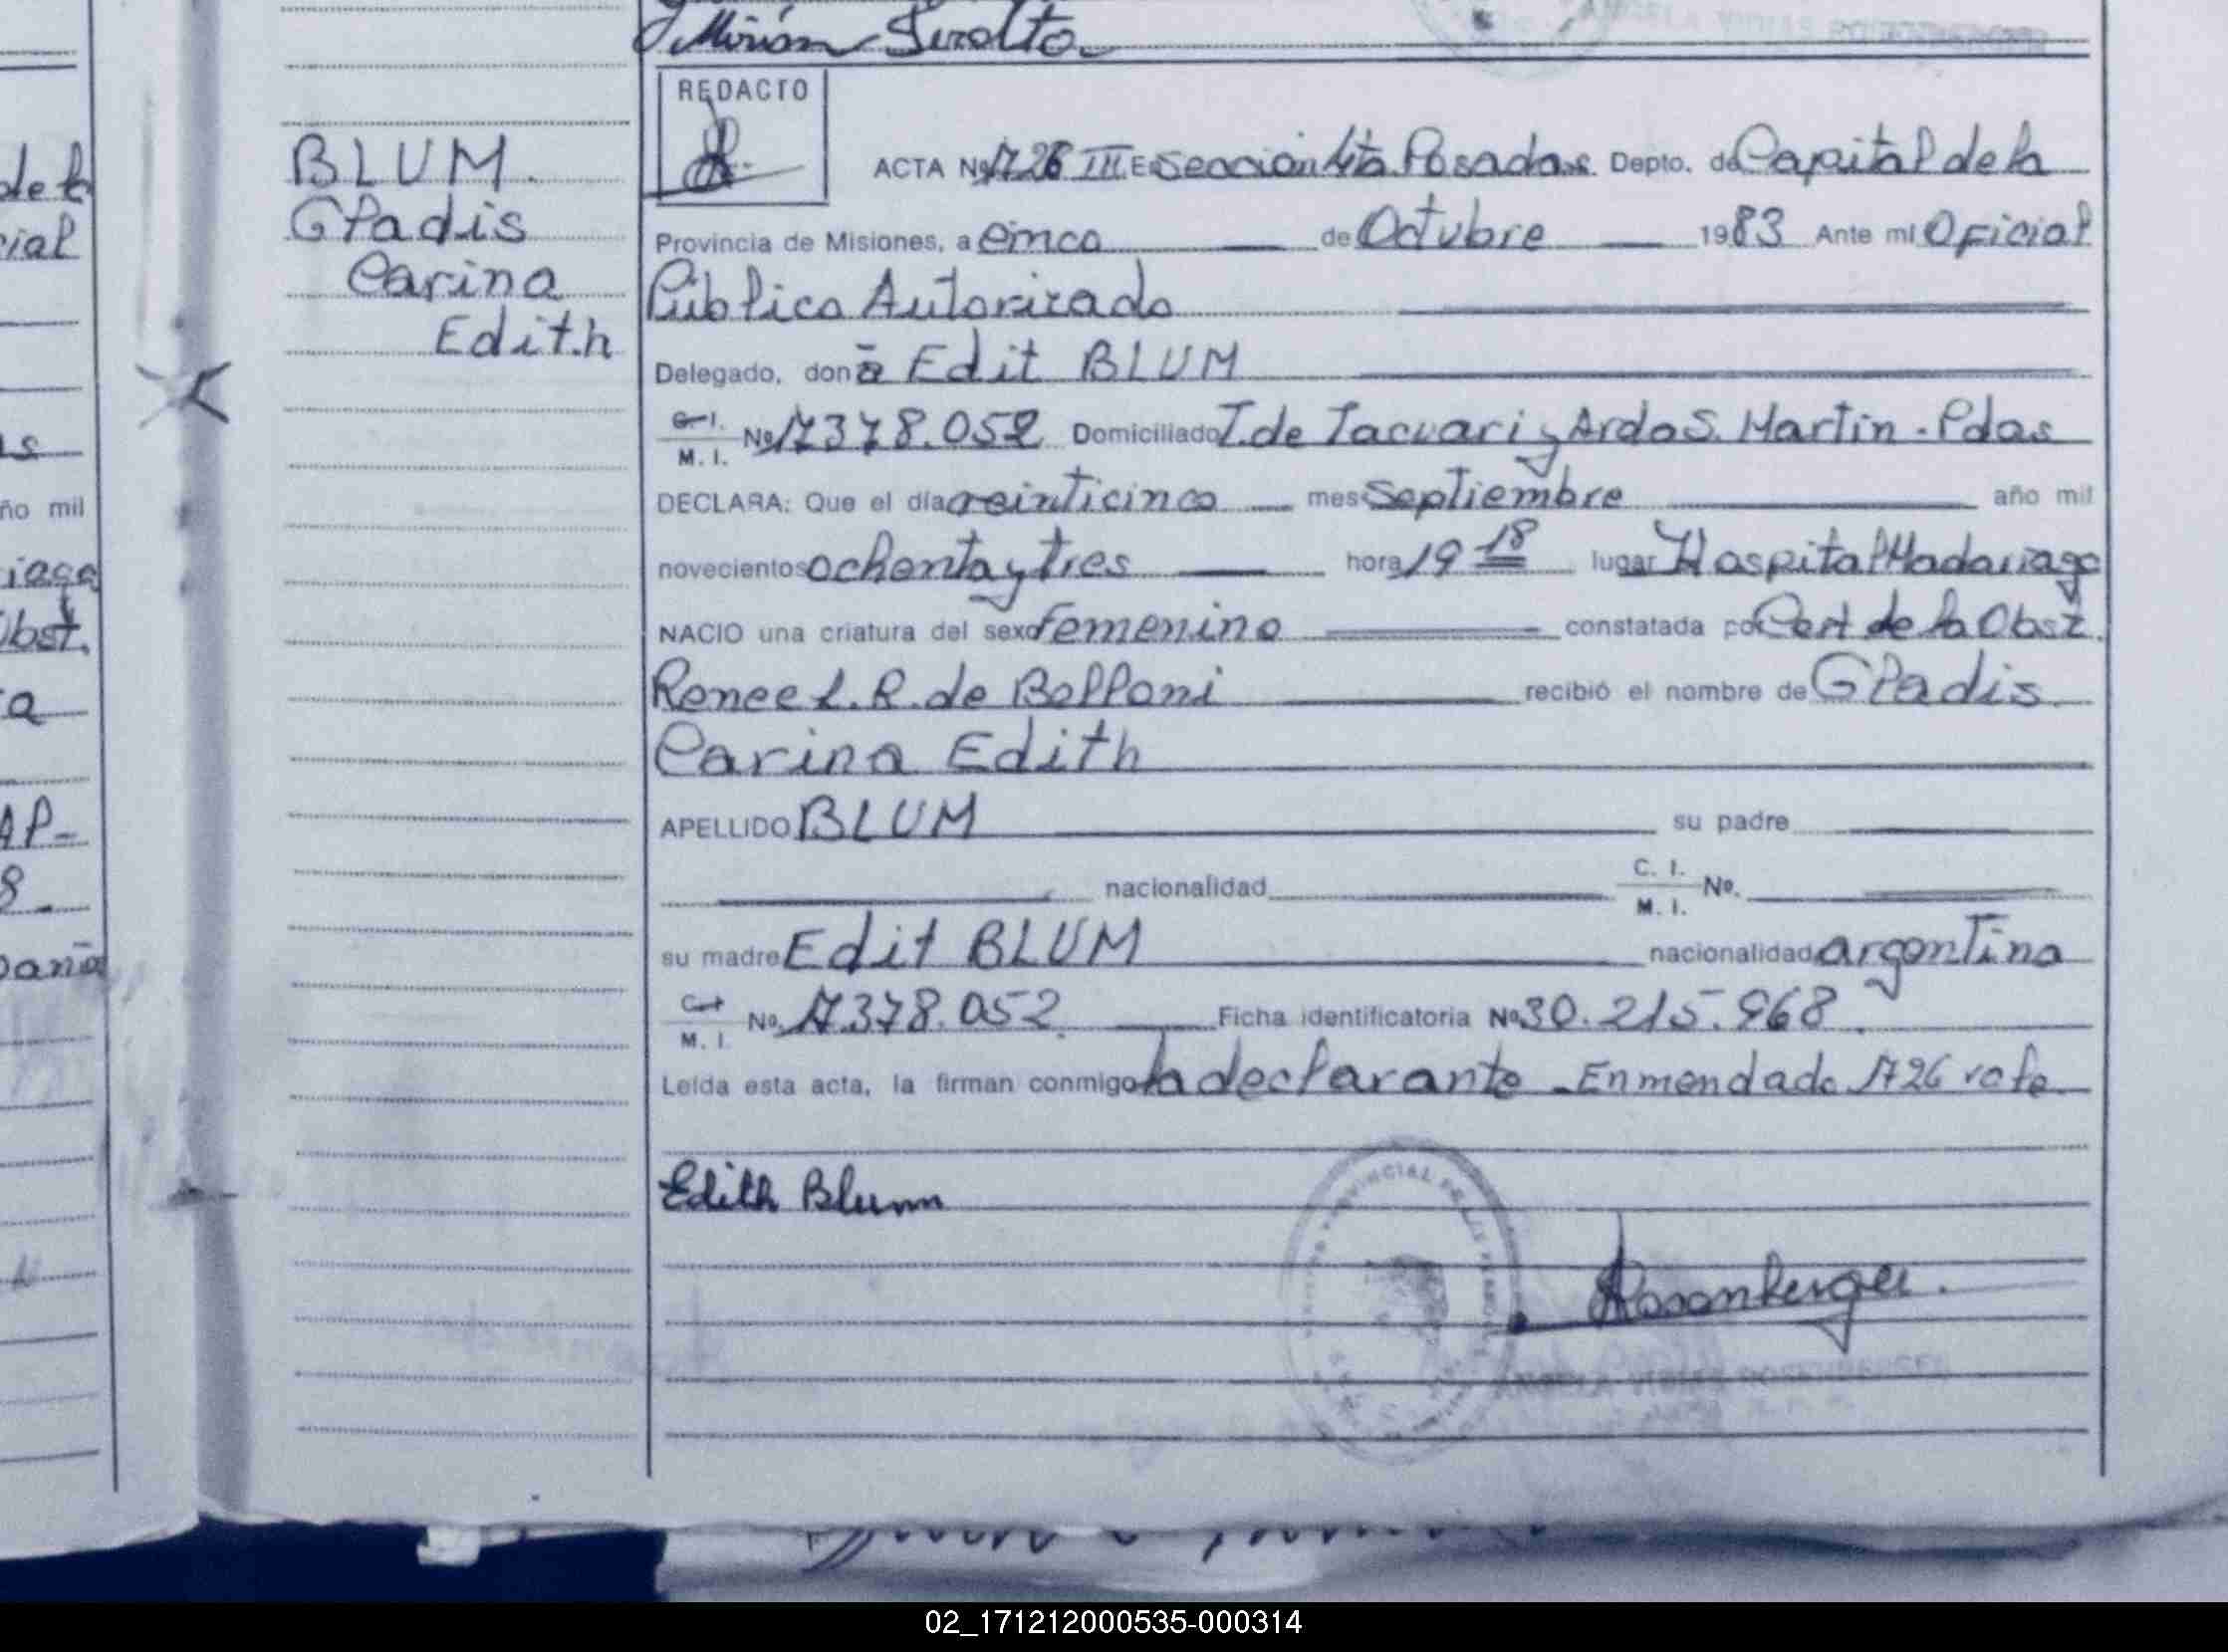 Mirián Peralta
REDACTO
BLUM.
Gladis
Carina
Edith
ACTA Nº 1726 III E Sección 4ta Posadas. Depto. de Capital de la
Provincia de Misiones, a cinco de Octubre 1983 Ante mi Oficial
Público Autorizado
Delegado, don ā Edit BLUM
C. I. M. I. Nº 17378.052 Domiciliado T. de Tacuari y Ardo S. Martin - Pdas
DECLARA: Que el día veinticinco mes Septiembre año mil
novecientos ochenta y tres hora 19 18 lugar Hospital Madariaga
NACIO una criatura del sexo femenino constatada por Cert de la Obst.
Renee L. R. de Belloni recibió el nombre de Gladis
Carina Edith
APELLIDO BLUM su padre
nacionalidad C. I. M. I. Nº.
su madre Edit BLUM nacionalidad argentina
C. I. M. I. Nº. 17.378.052 Ficha identificatoria Nº 30.215.968.
Leída esta acta, la firman conmigo la declarante - Enmendado 1726 vale
Edith Blum
Rosenberger.
ANGELA ROSENBERGER
02_171212000535-000314